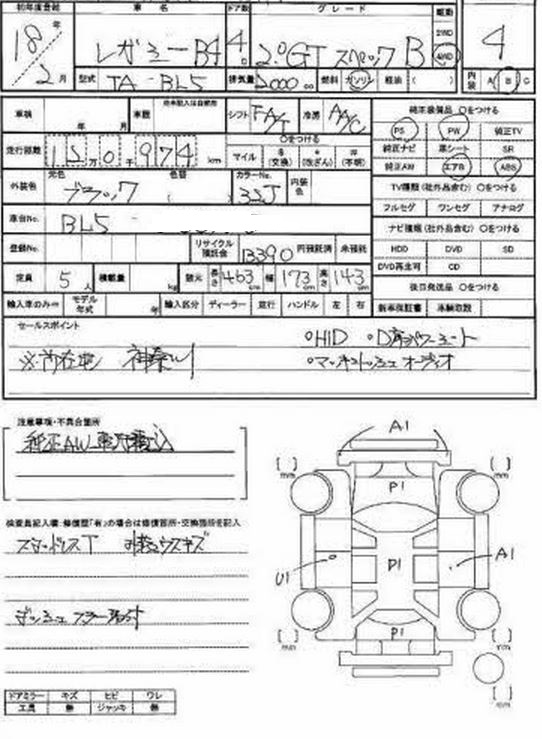 初年度登録 車名 ドア数 グレード 駆動
18年 レガシィB4 4 2.0GT スペックB 2WD 4WD 4
2月 型式 TA-BL5 排気量 2000cc 燃料 ガソリン 軽油 ( ) 内装 A B C
車検 年 月 車歴 シフト FAT 冷房 AAC 純正装備品 〇をつける
〇をつける PS PW 純正TV
走行距離 km マイル *(改ざん) 純正ナビ 革シート SR
純正AW エアB ABS
外装色 元色 ブラック 色替 カラーNo. 32J 内装色 TV種類(社外品含む) 〇をつける
フルセグ ワンセグ アナログ
車台No. BL5- ナビ種類(社外品含む) 〇をつける
登録No. リサイクル預託金 13390 円預託済 未預託 HDD DVD SD
DVD再生可 CD
定員 5人 積載量 kg 諸元 長さ463cm 幅173cm 高さ143cm 後日発送品 〇をつける
輸入車のみ モデル年式 年 輸入区分 ディーラー 並行 ハンドル 左 右 新車保証書
セールスポイント
〇HID 〇D席パワーシート
※所在地 神奈川 〇マッキントッシュオーディオ
注意事項・不具合箇所
純正AW車内積込
A1
[ ]mm [ ]mm
P1
検査員記入欄:修復歴「有」の場合は修復箇所・交換箇所を記入
スタッドレスT 小キズ
U1 P1 A1
P1
[ ]mm [ ]mm
ドアミラー キズ ヒビ ワレ
工具 無 ジャッキ 無